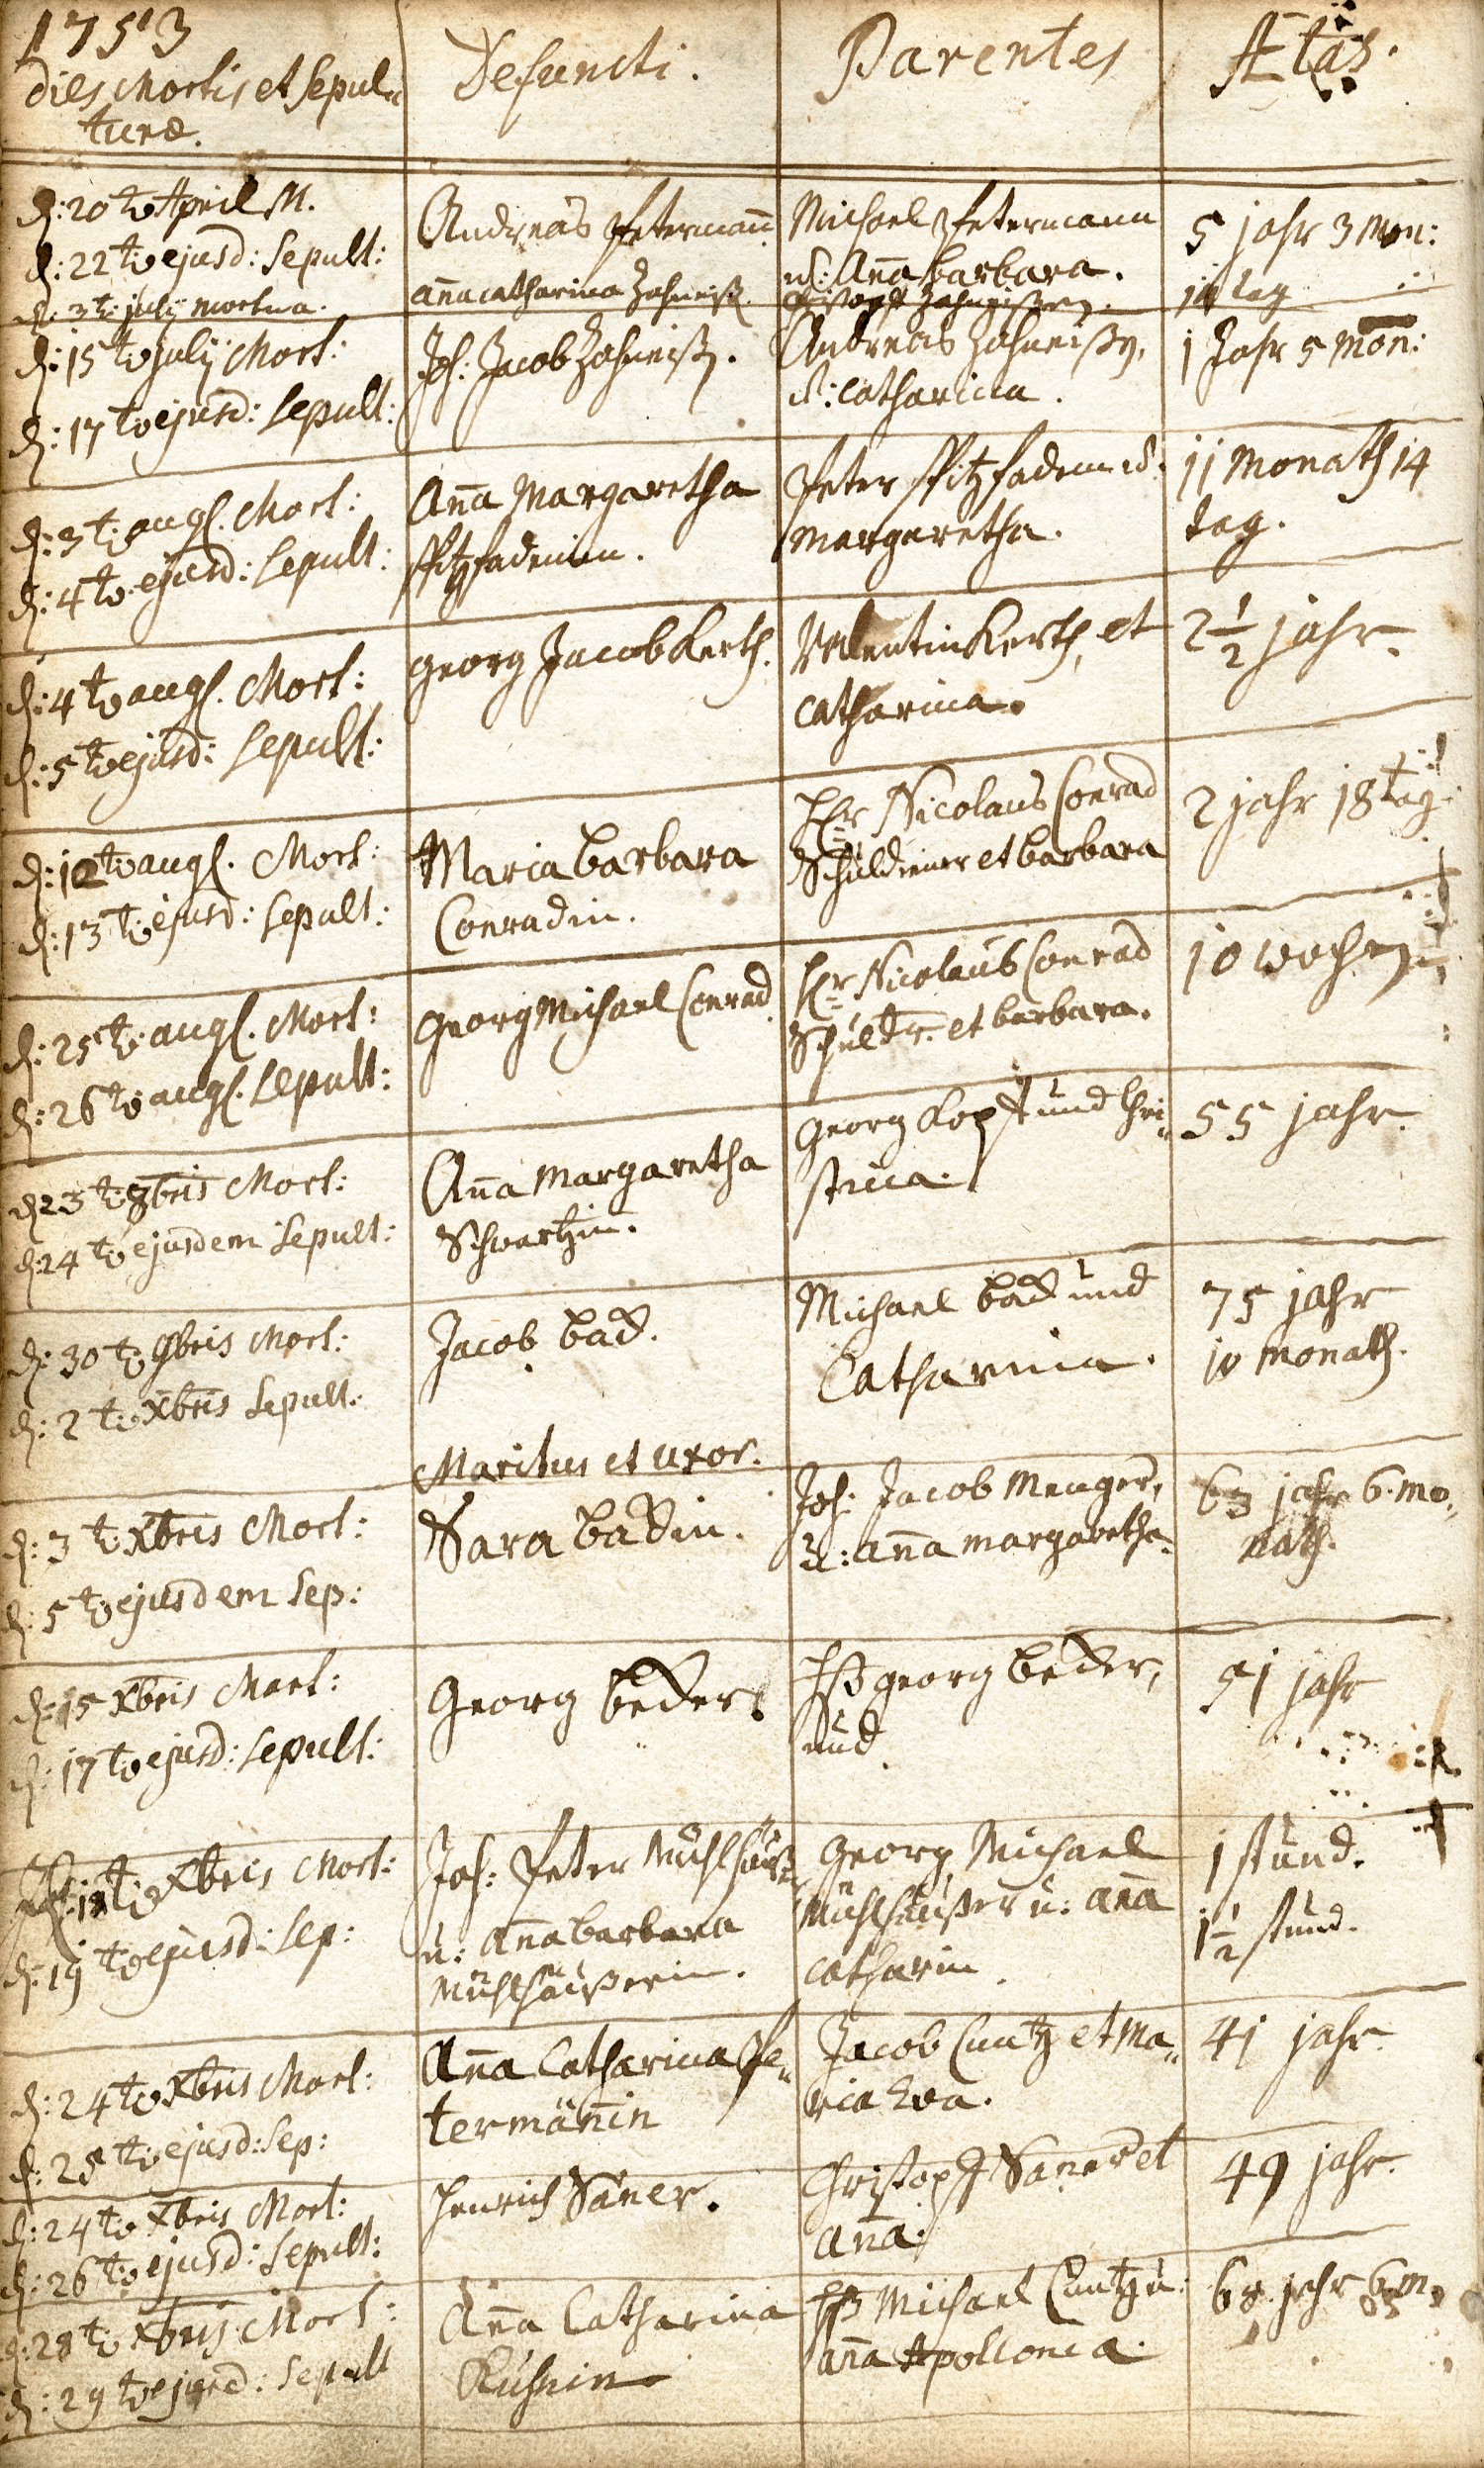 1753
Dies Mortis et Sepul=
turæ.
Defuncti.
Parentes
Ætas.
d: 20 t: April M.
d: 22 t: ejusd: Sepult:
Andreas Petermañ
Michael Petermann
u: Aña Barbara.
5 jahr 3 Mon:
d. 3 t: july mortua.
anna catharina Zahneiß.
Christoph Zahneißen.
tag
d: 15 t: july Mort:
d: 17 t: ejusd: Sepult:
Joh: Jacob Zahneiß.
Andreas Zahneiß,
u: catharina.
1 Jahr 5 Mon:
d: 3 t: augs. Mort:
d: 4 t: ejusd: Sepult:
Aña Margaretha
Spitzfadenin.
Peter Spitzfaden u:
Margaretha.
11 Monath 14
tag.
d: 4 t: augs. Mort:
d: 5 t: ejusd: Sepult:
Georg Jacob Kerth.
Valentin Kerth, et
catharina.
2 1/2 jahr.
d: 12 t: augs. Mort:
d: 13 t: ejusd: Sepult:
Maria Barbara
Conradin.
Hr Nicolaus Conrad
Schuldiener et Barbara
2 jahr 18 tag
d: 25 t: augs. Mort:
d: 26 t: augs. Sepult:
Georg Michael Conrad
Hr Nicolaus Conrad
Schuldr. et Barbara.
10 wochen
d 23 t: 8bris Mort:
d: 24 t: ejusdem Sepult:
Aña Margaretha
Schwartzin.
Georg Kopf und Chri=
stina.
55 jahr.
d: 30 t: 9bris Mort:
d: 2 t: Xbris Sepult:
Jacob Back.
Michael Back und
Catharina.
75 jahr
10 monath.
Maritus et uxor.
d: 3 t: Xbris Mort:
d: 5 t: ejusdem Sep:
Sara Backin.
Joh: Jacob Menger,
u: aña margaretha.
63 jahr 6. mo=
nath.
d: 15 Xbris Mort:
d: 17 t: ejusd: Sepult:
Georg Becker
Hß georg Becker,
und
51 jahr
18 t: Xbris Mort:
d: 19 t: ejusd: Sep:
Joh: Peter Mühlhäußer
u: Aña Barbara
Mühlhäußerin.
Georg Michael
Mühlhäußer u: aña
catharin.
1 stund.
1 1/2 stund.
d: 24 t: Xbris Mort:
d: 25 t: ejusd: Sep:
Aña Catharina Pe=
termäñin
Jacob Cuntz et Ma=
ria Eva.
41 jahr.
d: 24 t: Xbris Mort:
d: 26 t: ejusd: Sepult:
Henrich Saner.
Christoph Saner et
aña.
49 jahr.
d: 28 t: Xbris Mort:
d: 29 t: ejusd: Sepult
Aña Catharina
Kuhnin
Hß Michael Cuntz u:
aña Apollonia.
68 jahr 6 m.